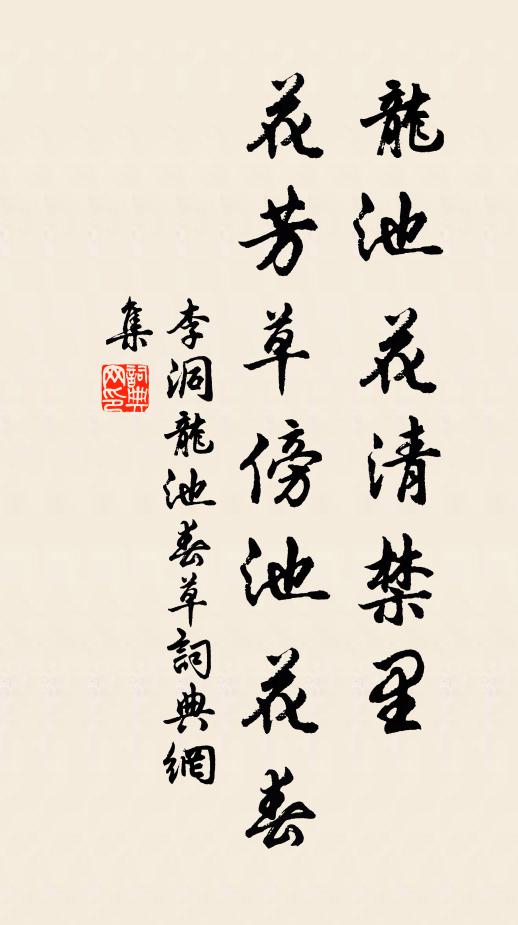 龍池花清禁里
花芳草傍池花春
李洞龍池春草詞典網
集
詞典
网印